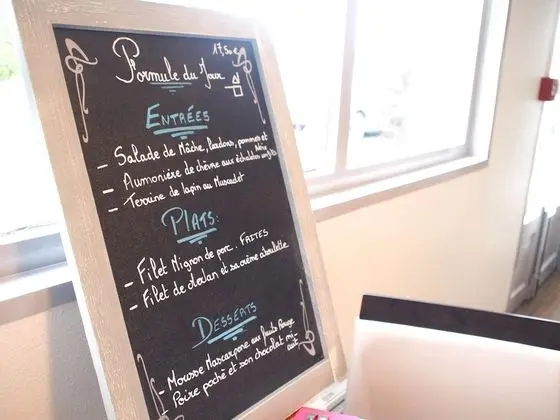 Formule du Jour 17,50€
ENTRÉES
- Salade de Mâche, lardons, pommes et
- Aumonière de chèvre aux échalotes confites
- Terrine de lapin au Muscadet
PLATS:
- Filet Mignon de porc. FRITES
- Filet de Merlan et sa crème ciboulette
DESSERTS
- Mousse Mascarpone aux fruits Rouge
Poire poché et son chocolat mi-
cuit